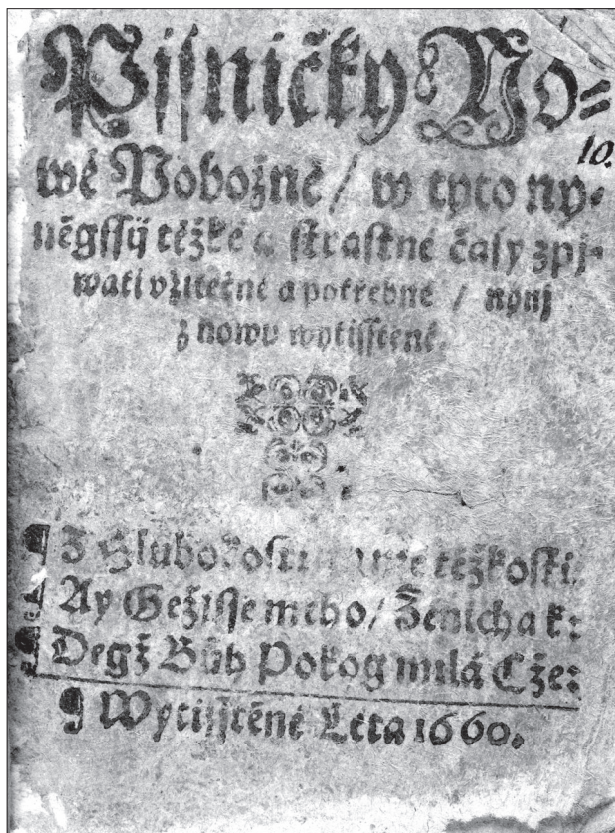 Pisničky No=
10.
wé Pobožné / w tyto ny=
něgssý těžké a strastné časy zpj=
wati vžitečné a potrebné / nynj
z nowu wytisstěné.
¶ Z Hlubokosti mé těžkosti.
¶ Ay Gežisse meho / Ženicha k:
¶ Degž Bůh Pokog milá Cže:
¶ Wytisstěné Léta 1660.